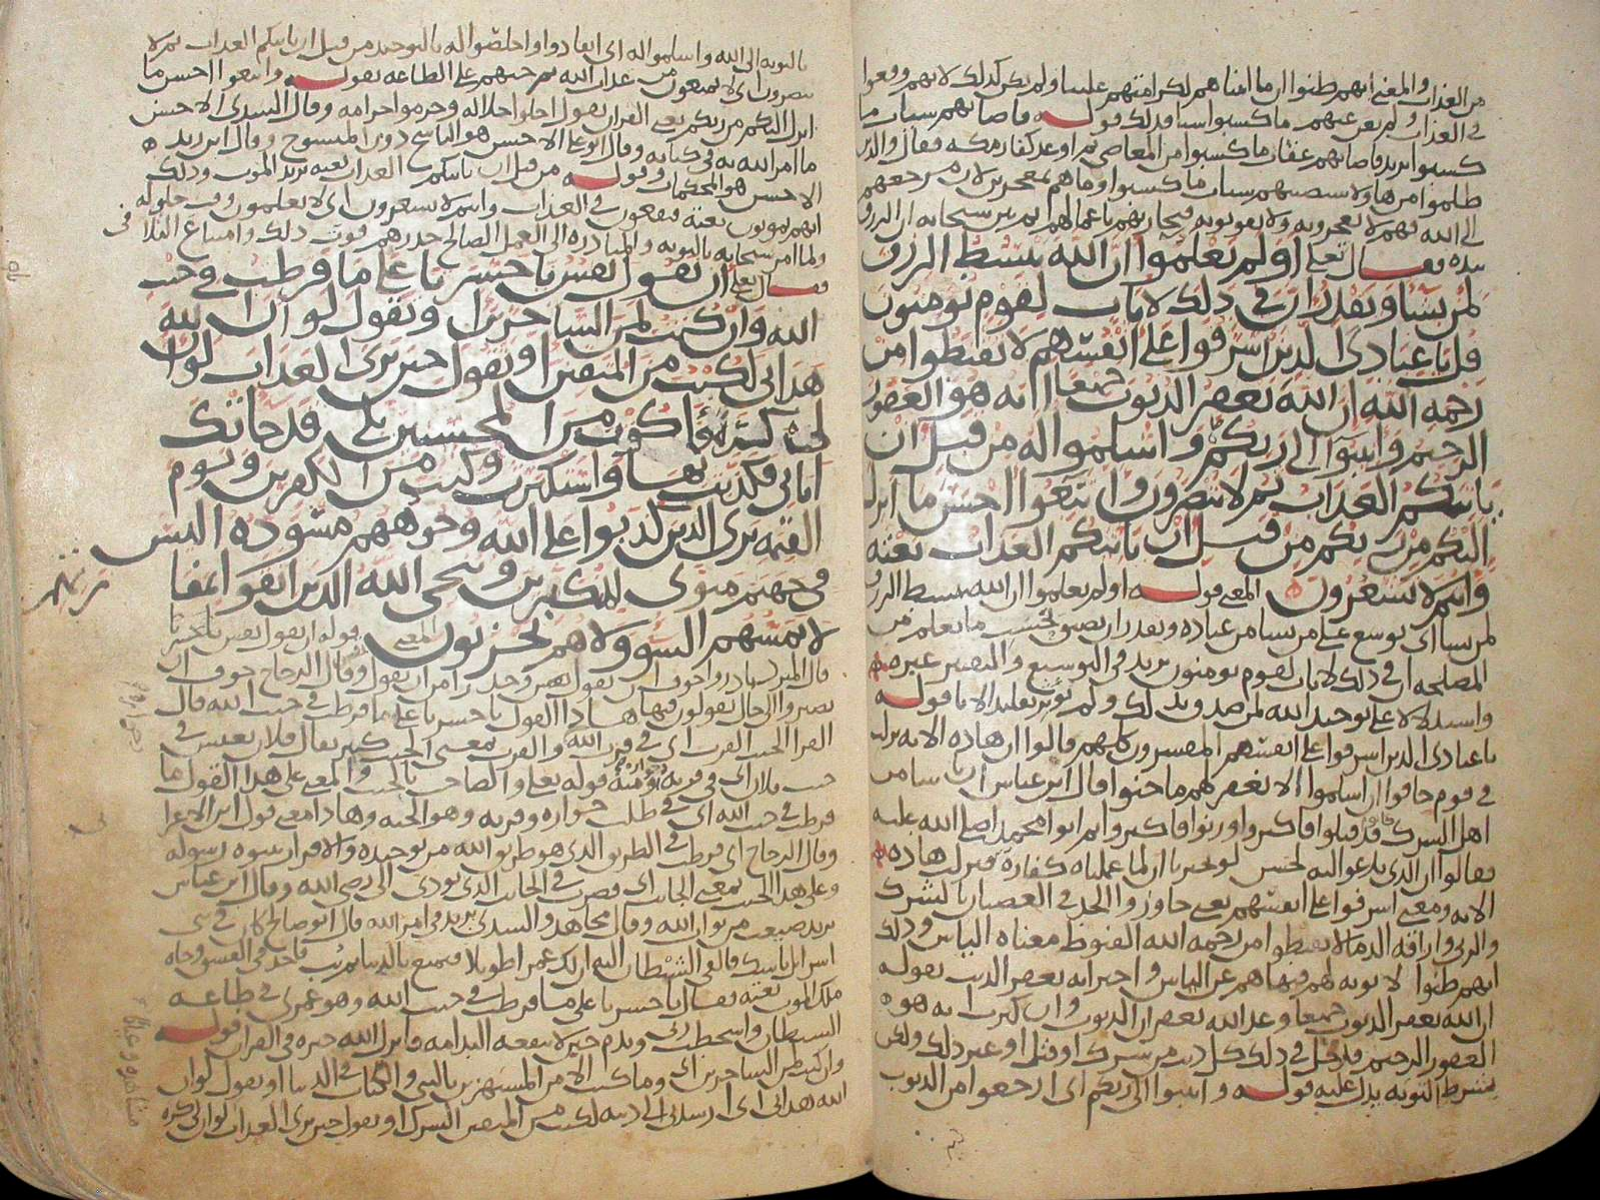 من العذاب والمعنى انهم ظنوا ان ما اتيناهم لكرامتهم علينا ولم يكن كذلك لانهم وقعوا
في العذاب ولم يغن عنهم ما كسبوا شيا فذلك قوله فاصابهم سيات ما
كسبوا يريد فاصابهم عقاب ما كسبوا من المعاصي ثم اوعد كفار مكه فقال والذين
ظلموا من هاولا سيصيبهم سيات ما كسبوا وما هم بمعجزين لان مرجعهم
الى الله فهم لا يعجزونه ولا يفوتونه فيجازيهم باعمالهم ثم بين سبحانه ان الرزق
بيده فقال تعلى اولم يعلموا ان الله يبسط الرزق
لمن يشا ويقدر ان في ذلك لايات لقوم يومنون
قل يا عبادي الذين اسرفوا على انفسهم لا تقنطوا من
رحمه الله ان الله يغفر الذنوب جميعا انه هو الغفور
الرحيم وانيبوا الى ربكم واسلموا له من قبل ان
ياتيكم العذاب ثم لا تنصرون واتبعوا احسن ما انزل
اليكم من ربكم من قبل ان ياتيكم العذاب بغته
وانتم لا تشعرون المعنى قوله اولم يعلموا ان الله يبسط الرزق
لمن يشا اي يوسع على من يشا من عباده ويقدر اي يضيق بحسب ما يعلم من
المصلحه ان في ذلك لايات لقوم يومنون يريد في التوسيع والتقتير عبره
واستدلالا على توحيد الله لمن صدق بذلك ولم تؤثر تقليد الابا قوله
يا عبادي الذين اسرفوا على انفسهم المفسرون كلهم قالوا ان هاذه الايه نزلت
في قوم خافوا ان اسلموا الا يغفر لهم ما جنوا قال ابن عباس ان ناسا من
اهل الشرك قد قتلوا فاكثروا وزنوا فاكثروا ثم اتوا محمدا صلى الله عليه
فقالوا ان الذي تدعوا اليه لحسن لو تخبرنا ان لما عملناه كفاره فنزلت هاذه
الايه ومعنى اسرفوا على انفسهم يعني جاوزوا الحد في العصيان بالشرك
والزنى واراقه الدما لا تقنطوا من رحمه الله القنوط معناه الياس وذلك
انهم ظنوا لا توبه لهم فنهاهم عن الياس واخبر انه يغفر الذنب بقوله
ان الله يغفر الذنوب جميعا وعد الله يغفران الذنوب وان كثرت انه هو
الغفور الرحيم فدخل في ذلك كل ذنب من شرك او قتل او غير ذلك ولكن
بشرط التوبه يدل عليه قوله وانيبوا الى ربكم اي ارجعوا من الذنوب
بالتوبه الى الله واسلموا له اي انقادوا واخلصوا له بالتوحيد من قبل ان ياتيكم العذاب ثم لا
تنصرون اي لا تمنعون من عذاب الله ثم حثهم على الطاعه بقوله واتبعوا احسن ما
انزل اليكم من ربكم يعني القران يقول احلوا حلاله وحرموا حرامه وقال السدي الاحسن
ما امر الله به في كتابه وقال ابو علي الاحسن هو الناسخ دون المنسوخ وقال ابن زيد
الاحسن هو المحكمات وقوله من قبل ان ياتيكم العذاب بغته يريد الموت وذلك
انهم يموتون بغته فيقعون في العذاب وانتم لا تشعرون اي لا تعلمون وقت حلوله
ولما امر سبحانه بالتوبه والمبادره الى العمل الصالح حذرهم فوت ذلك وامتناع التلافي
فقال تعلى ان تقول نفس يا حسرتا على ما فرطت في جنب
الله وان كنت لمن الساخرين او تقول لو ان الله
هداني لكنت من المتقين او تقول حين ترى العذاب لو ان
لي كرة فاكون من المحسنين بلى قد جاتك
اياتي فكذبت بها واستكبرت وكنت من الكفرين ويوم
القيمه ترى الذين كذبوا على الله وجوههم مسوده اليس
في جهنم مثوى للمتكبرين وينجي الله الذين اتقوا بمفا
زتهم
لا يمسهم السو ولا هم يحزنون المعنى قوله ان تقول نفس يا حسرتا
قال المبرد بادروا خوف ان تقول نفس وحذرا من ان يقول وقال الزجاج خوف ان
تصيروا الى حال تقولون فيها هاذا القول يا حسرتا على ما فرطت في جنب الله قال
الفرا الجنب القرب اي في قرب الله والقرب بمعنى الجنب كثير يقال فلان يعيش في
جنب فلان اي في قربه ومنه قوله تعلى والصاحب بالجنب والمعنى على هذا القول ما
فرطت في جنب الله اي في طلب جواره وقربه وهو الجنه وهاذا معنى قول ابن الاعرا
وقال الزجاج اي فرطت في الطريق الذي هو طريق الله من توحيده والاقرار بنبوه رسوله
وعلى هذا الجنب بمعنى الجانب اي قصرت في الجانب الذي يودي الى رضى الله وقال ابن عباس
يريد ضيعت من ثواب الله وقال مجاهد والسدي يريد في امر الله قال ابو صالح كان في بني
ملك الموت بغته فقال يا حسرتا على ما فرطت في جنب الله وهو عمري في طاعه
الشيطان واسخطت ربك وندم حين لا تنفعه الندامه فانزل الله خبره في القران قوله
وان كنت لمن الساخرين اي وما كنت الا من المستهزين بالنبي والكتاب في الدنيا او تقول لو ان
الله هداني اي ارشدني الى دينه لكنت من المتقين الشرك او تقول حين ترى العذاب لو ان لي كره